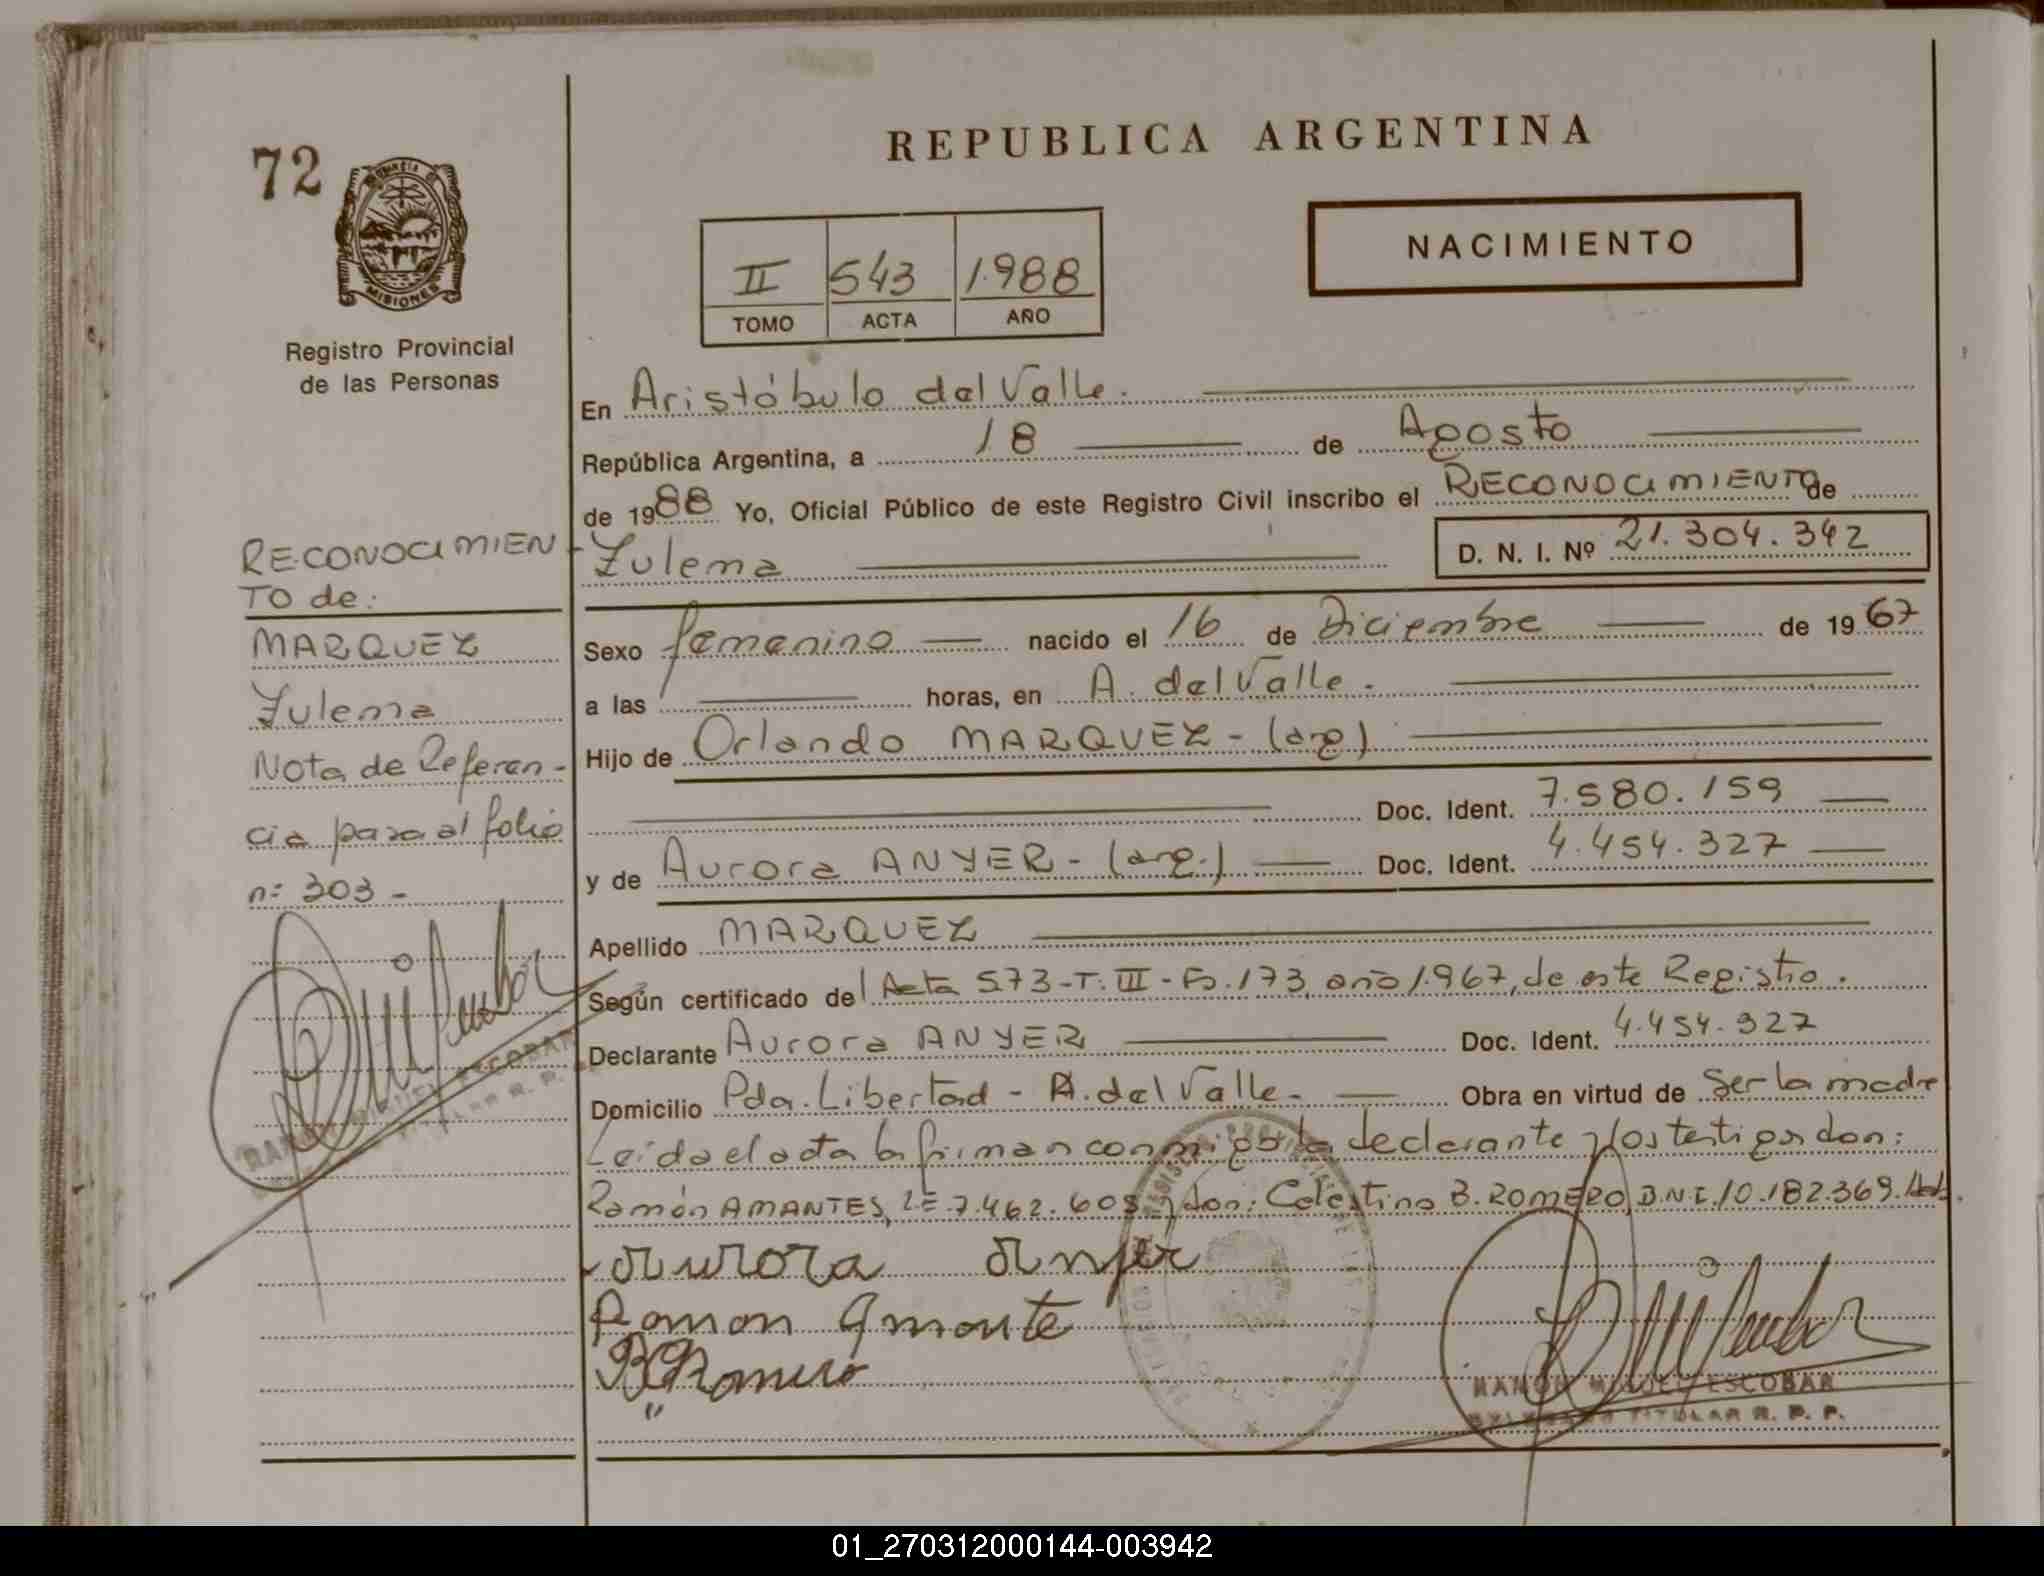 72
PROVINCIA DE
MISIONES
Registro Provincial
de las Personas
RECONOCIMIEN-
TO de:
MARQUEZ
Zulema
Nota de Referen-
cia pasa al folio
n: 303-
RAMON MIGUEL ESCOBAR
TITULAR R. P.
REPUBLICA ARGENTINA
NACIMIENTO
II 543 1.988
TOMO ACTA AÑO
En Aristóbulo del Valle.
República Argentina, a 18 de Agosto
de 1988 Yo, Oficial Público de este Registro Civil inscribo el RECONOCIMIENTO de
Zulema D. N. I. Nº 21.304.342
Sexo femenino nacido el 16 de Diciembre de 1967
a las horas, en A. del Valle.
Hijo de Orlando MARQUEZ - (arg)
Doc. Ident. 7.580.159
y de Aurora ANYER - (arg.) Doc. Ident. 4.454.327
Apellido MARQUEZ
Según certificado del Acta 573-T. III - Fo. 173, año 1.967, de este Registro.
Declarante Aurora ANYER Doc. Ident. 4.454.327
Domicilio Pda. Libertad - A. del Valle. Obra en virtud de ser la madre
Leida el acta la firman conmigo la declarante y los testigos don:
Ramón AMANTES, L.E. 7.462.605 y don: Celestino B. ROMERO, D.N.I. 10.182.369.
Aurora Anyer
Ramon Amante
B C Romero
RAMON MIGUEL ESCOBAR
DELEGADO TITULAR R. P. P.
01_270312000144-003942